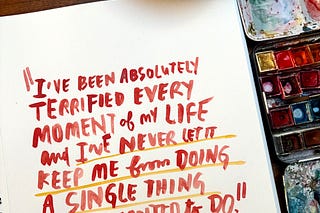 "I'VE BEEN ABSOLUTELY
TERRIFIED EVERY
MOMENT of MY LIFE
and I'VE NEVER LET IT
KEEP ME from DOING
A SINGLE THING
to DO."